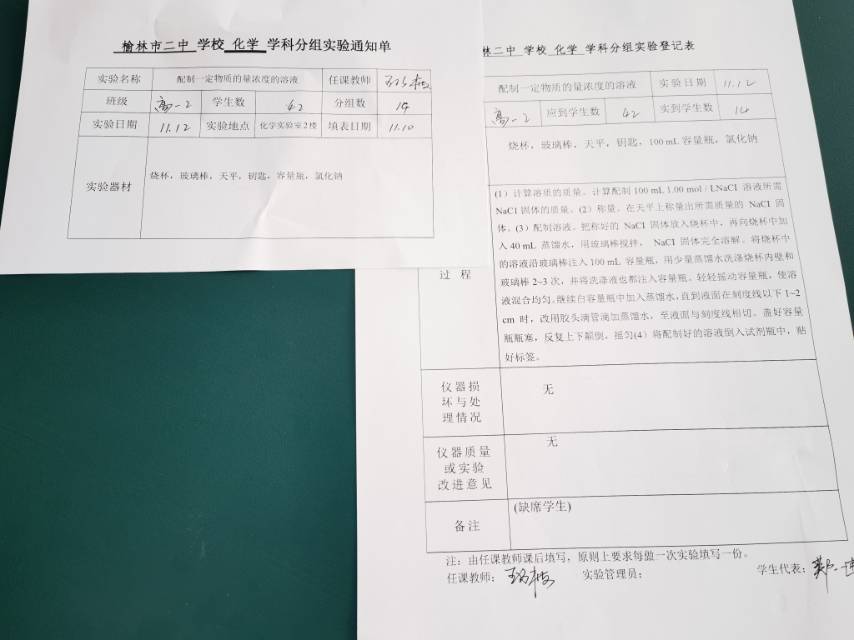 榆林市二中 学校 化学 学科分组实验通知单
实验名称 配制一定物质的量浓度的溶液 任课教师
班级 高一2 学生数 62 分组数 14
实验日期 11.12 实验地点 化学实验室2楼 填表日期 11.10
实验器材 烧杯，玻璃棒，天平，钥匙，容量瓶，氯化钠
林二中 学校 化学 学科分组实验登记表
配制一定物质的量浓度的溶液 实验日期 11.12
高一2 应到学生数 62 实到学生数 14
烧杯，玻璃棒，天平，钥匙，100 mL 容量瓶，氯化钠
(1) 计算溶质的质量。计算配制 100 mL 1.00 mol / LNaCl 溶液所需
NaCl 固体的质量。(2) 称量。在天平上称量出所需质量的 NaCl 固
体。(3) 配制溶液。把称好的 NaCl 固体放入烧杯中，再向烧杯中加
入 40 mL 蒸馏水，用玻璃棒搅拌， NaCl 固体完全溶解。将烧杯中
的溶液沿玻璃棒注入 100 mL 容量瓶，用少量蒸馏水洗涤烧杯内壁和
玻璃棒 2~3 次，并将洗涤液也都注入容量瓶。轻轻摇动容量瓶，使溶
液混合均匀。继续白容量瓶中加入蒸馏水，直到液面在刻度线以下 1~2
cm 时，改用胶头滴管滴加蒸馏水，至液面与刻度线相切。盖好容量
瓶瓶塞，反复上下颠倒，摇匀(4) 将配制好的溶液倒入试剂瓶中，贴
好标签。
过 程
仪器损
坏与处
理情况
无
仪器质量
或实验
改进意见
无
备注
(缺席学生)
注：由任课教师课后填写，原则上要求每做一次实验填写一份。
任课教师： 实验管理员： 学生代表：